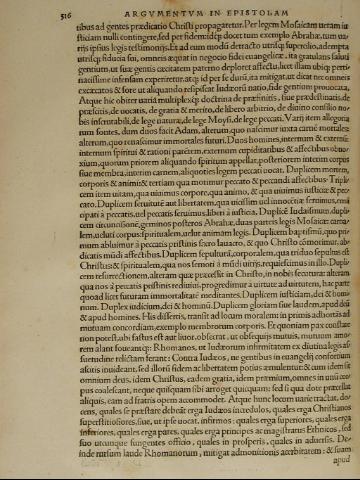 516 ARGVMENTVM IN EPISTOLAM
tibus ad gentes prædicatio Christi propagatetur. Per legem Mosaicam neutram iu
sticiam nulli contingere, sed per fidem: idq́; docet tum exemplo Abrahæ, tum ua-
rijs ipsius legis testimonijs. Et ad eum modũ detracto utriusq́; supercilio, adempta
utrisq́; fiducia sui, omneis æquat in negocio fidei euangelicæ, ita gratulans saluti
gentium, ut suæ gentis cæcitatem paterno deploret affectu, licet illam ubiq́; perti-
nacissime infensam experiretur. atq́; id per se durũ, ita mitigat, ut dicat nec omneis
excæcatos & fore ut aliquando respiscat Iudæorũ natio, fide gentium prouocata.
Atque hic obiter uaria multiplexq́; doctrina de præfinitis, siue prædestinatis, de
præscitis, de uocatis, de gratia & merito, de libero arbitrio, de diuino consilio no-
bis inscrutabili, de lege naturæ, de lege Moysi, de lege peccati. Varij item allegoria
rum fontes, dum duos facit Adam, alterum, quo nascimur iuxta carnẽ mortales:
alterum, quo renascimur immortales futuri. Duos homines, internum & externũ:
internum spiritui & rationi parẽtem, externum cupiditatibus & affectibus obno-
xium, quorum priorem aliquando spiritum appellat, posteriorem interim corpus
siue membra, interim carnem, aliquoties legem peccati uocat. Duplicem mortem,
corporis & animi: & tertiam qua morimur peccato & peccandi affectibus. Tripli-
cem item uitam, qua uiuimus corpore, qua animo, & qua uiuimus iusticiæ & pec-
cato. Duplicem seruitutẽ aut libertatem, qua uicissim uel innocentiæ seruimus, emã
cipati à peccatis, uel peccatis seruimus, liberi à iusticia. Duplicẽ Iudaismum, dupli-
cem circuncisionẽ, geminos posteros Abrahæ, duas parteis legis Mosaicæ, carna-
lem, ueluti corpus: spiritualem, uelut animam legis. Duplicem baptismũ, quo pri-
mum abluimur à peccatis pristinis sacro lauacro, & quo Christo cõmorimur, ab-
dicatis mũdi affectibus. Duplicem sepulturã, corporalem, qua triduo sepultus est
Christus: & spiritualem, qua nos semoti à mũdi uitijs, requiescimus in illo. Dupli-
cem resurrectionem, alteram quæ præcessit in Christo, in nobis secutura: alteram
qua nos à peccatis pristinis rediuiui, progredimur à uirtute ad uirtutem, hac parte
quoad licet futuram immortalitatẽ meditantes. Duplicem iusticiam, dei & homi-
num. Duplex iudicium, dei & hominũ. Duplicem gloriam siue laudem, apud deũ
& apud homines. His dissertis, transit ad locum moralem: in primis adhortãs ad
mutuam concordiam, exemplo membrorum corporis. Et quoniam pax constare
non potest, ubi fastus est aut liuor, obsecrat, ut obsequijs mutuis, mutuum amo-
rem alant foueantq́;: Romanos, ut Iudæorum infirmitatem ex diutina legis as-
suetudine relictam ferant: Contra Iudæos, ne gentibus in euangelij consortium
ascitis inuideant, sed illorũ fidem ac libertatem potius æmulentur: & cum idem sit
omnium deus, idem Christus, eadem gratia, idem præmium, omnes in unũ cor-
pus coalescant, neque quisquam sibi arroget quicquam: sed si qua dote præcellat
aliquis, eam ad fratris opem accommodet. Atque hunc locum uarie tractat, do-
cens, quales se præstare debeãt erga Iudæos incredulos, quales erga Christianos
superstitiosiores, siue, ut ipse uocat, infirmos: quales erga superiores, quales erga
inferiores, quales erga pares, quales erga principes ac magistratus Ethnicos, sed
suo utcunque fungentes officio, quales in prosperis, quales in aduersis. De-
inde rursum laude Romanorum, mitigat admonitionis acerbitatem: & suam
apud